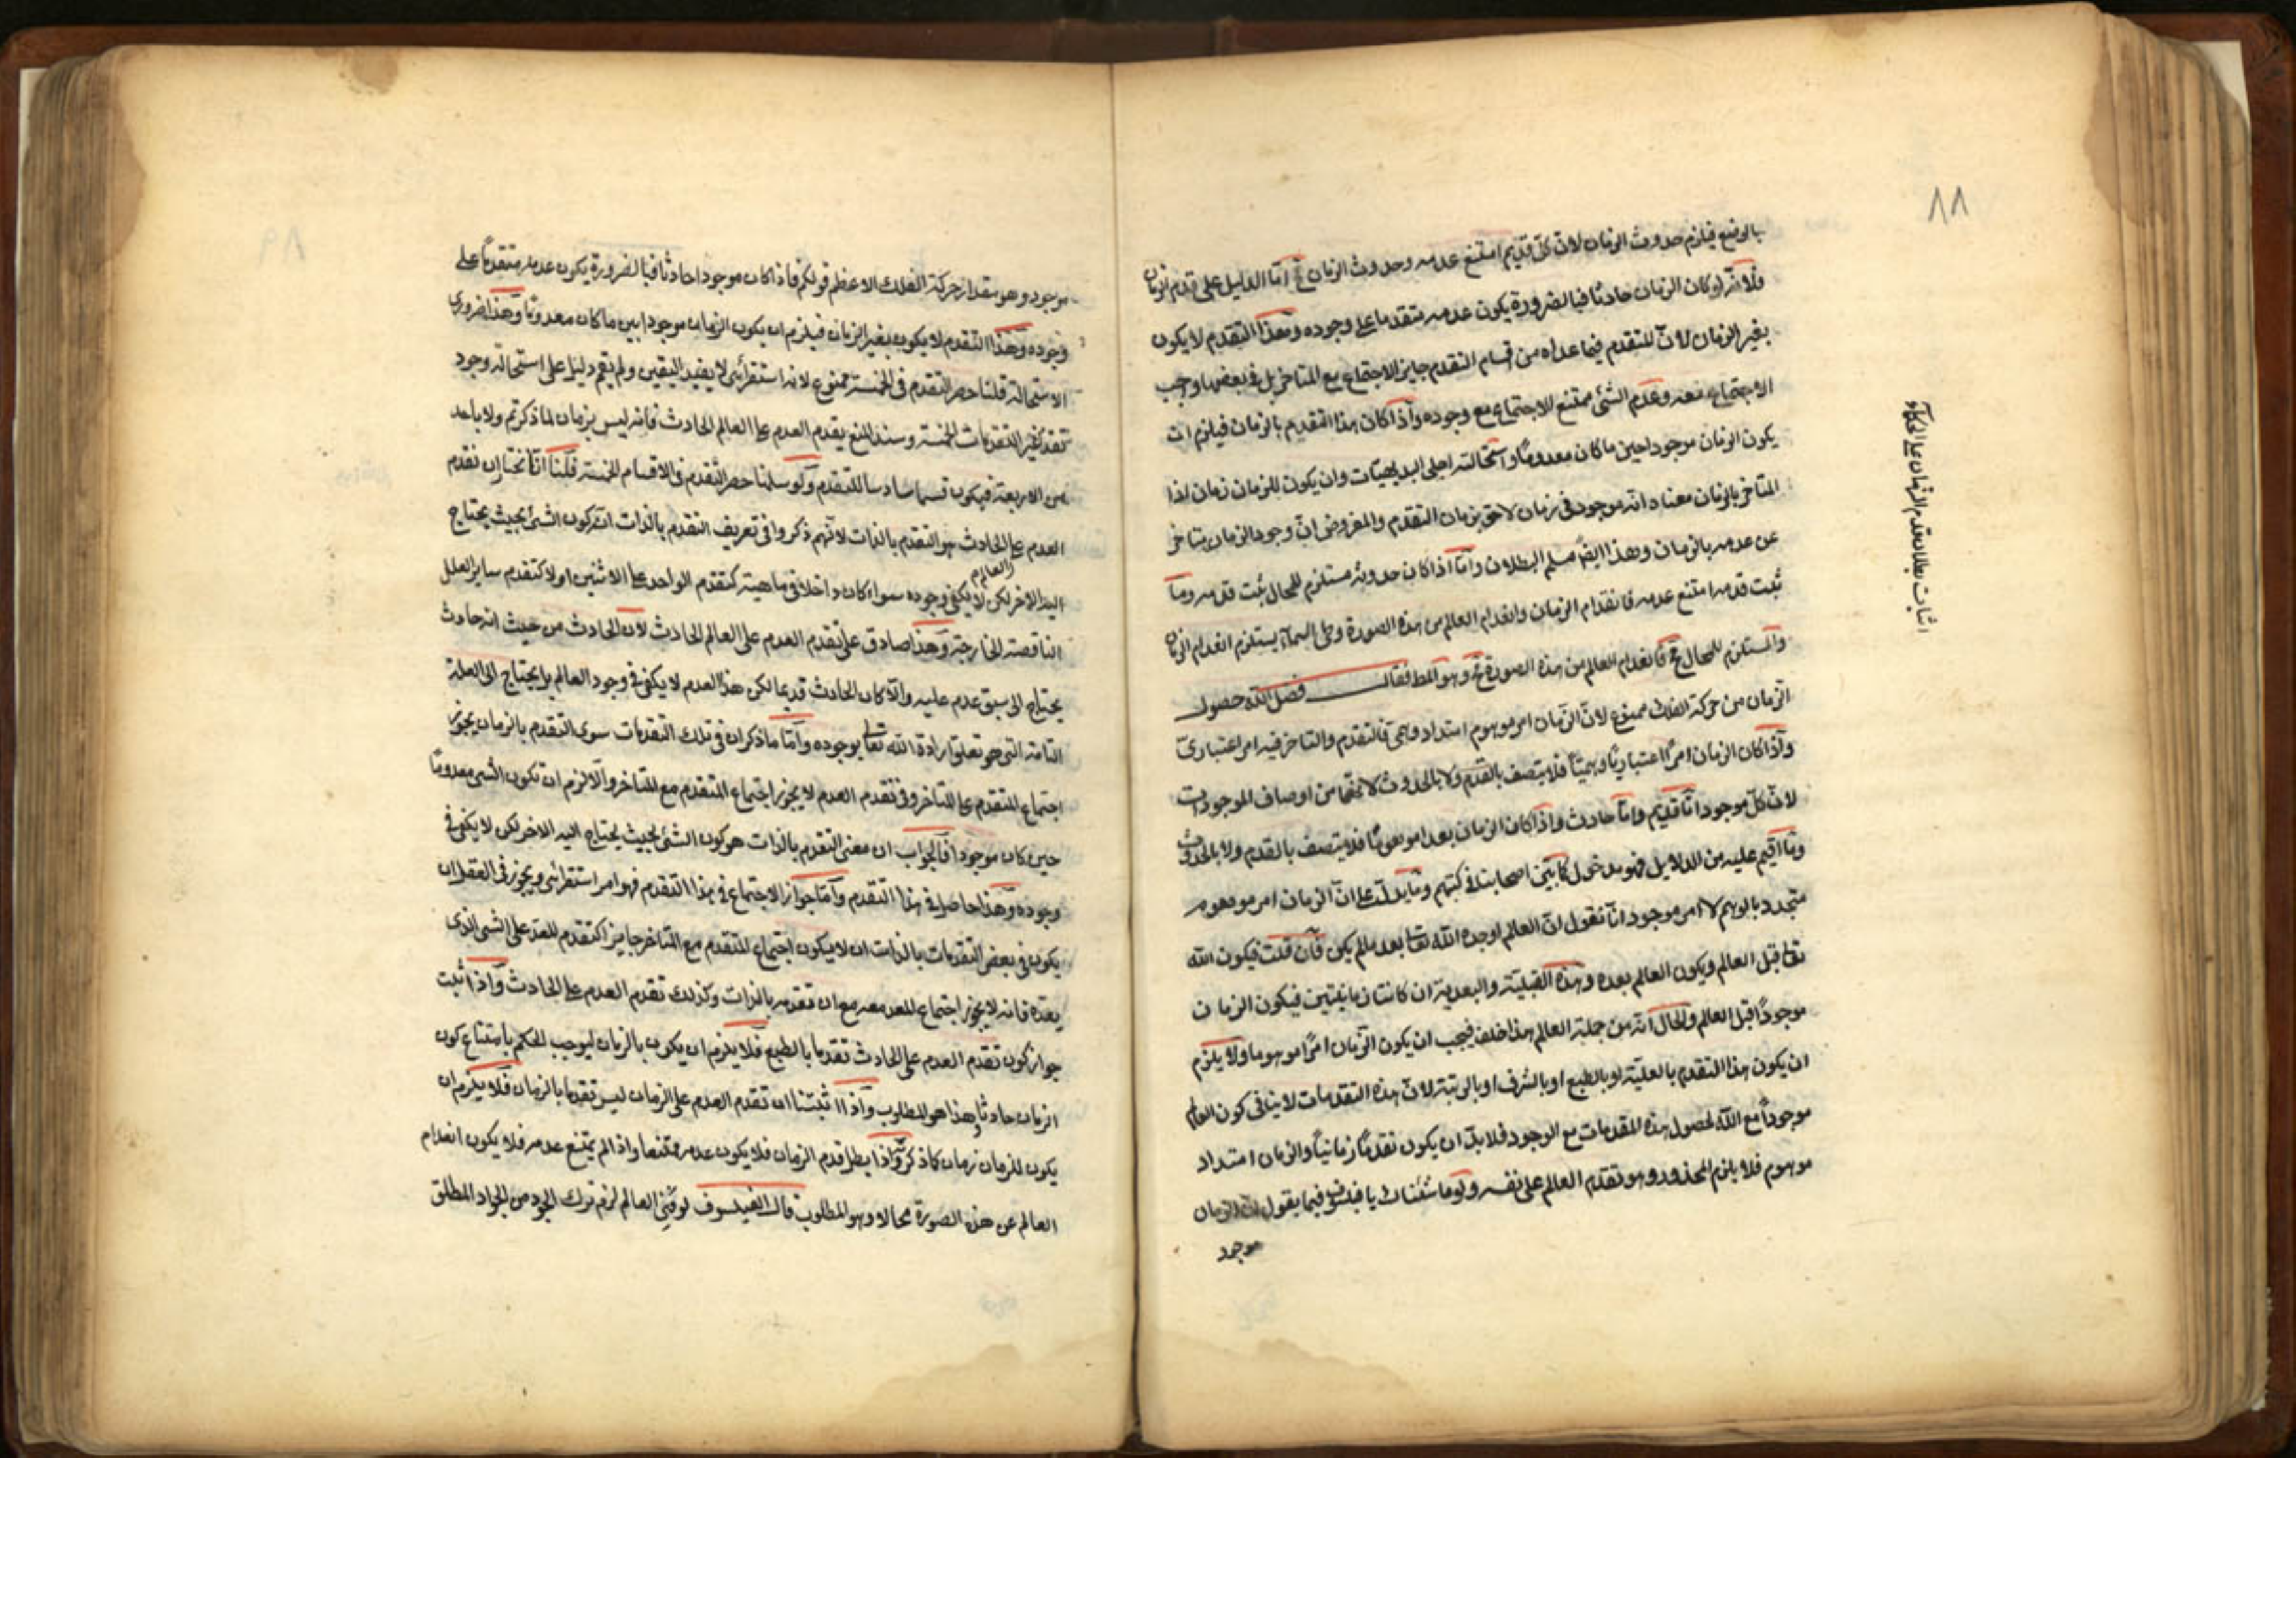 ٨٨
بالوضع فيلزم حدوث الزمان لان كل قديم امتنع عدمه وحدوث الزمان مح اما الدليل على قدم الزمان
فلانه لو كان الزمان حادثا فبالضرورة يكون عدمه متقدما على وجوده وهذا التقدم لا يكون
بغير الزمان لان للتقدم فيما عداه من اقسام التقدم جايز الاجتماع مع المتاخر بل في بعضها واجب
الاجتماع معه وعدم الشئ ممتنع الاجتماع مع وجوده واذا كان هذا التقدم بالزمان فيلزم ان
يكون الزمان موجودا حين ما كان معدوما واستحالته اجلى البديهيات وان يكون للزمان زمان اذا
المتاخر بالزمان معناه انه موجود في زمان لاحق بزمان المتقدم والمفروض ان وجود الزمان متاخر
عن عدمه بالزمان وهذا ايضا مسلم البطلان واما اذا كان حدوثه مستلزم للمحال ثبت قدمه وما
ثبت قدمه امتنع عدمه فانعدام الزمان وانعدام العالم من هذه الصورة وطى السماء يستلزم انعدام الزمان
والمستلزم للمحال مح فانعدام العالم من هذه الصورة مح وهو المط فقال فضل الله حصول
الزمان من حركة الفلك ممنوع لان الزمان امر موهوم امتداد وهمى فالتقدم والتاخر فيه امر اعتبارى
واذا كان الزمان امرا اعتباريا وهميا فلا يتصف بالقدم ولا بالحدوث لانهما من اوصاف الموجودات
لان كل موجود اما قديم واما حادث واذا كان الزمان بعدا موهوما فلا يتصف بالقدم ولا بالحدوث
وما اقيم عليه من الدلايل فهو مدخول كما بين اصحابنا في كتبهم وما يدلك على ان الزمان امر موهوم
متجدد بالوهم لا امر موجود انا نقول ان العالم اوجده الله تعا بعد ما لم يكن فان قلت فيكون الله
تعا قبل العالم ويكون العالم بعده وهذه القبلية والبعدية ان كانتا زمانيتين فيكون الزمان
موجودا قبل العالم والحال انه من جملة العالم هذا خلف فيجب ان يكون الزمان امرا موهوما ولا يلزم
ان يكون هذا التقدم بالعلية او بالطبع او بالشرف او بالرتبة لان هذه التقدمات لا ينافى كون العالم
موجودا مع الله لحصول هذه المقدمات مع الوجود فلا بد ان يكون تقدما زمانيا والزمان امتداد
موهوم فلا يلزم المحذور وهو تقدم العالم على نفسه ولو ما شئناك يا فيلسوف فيما يقول ان الزمان
موجود
اثبات بطلان قدم الزمان على الحكماء
٨٩
موجود وهو مقدار حركة الفلك الاعظم قولكم فاذا كان موجودا حادثا فبالضرورة يكون عدمه متقدما على
وجوده وهذا التقدم لا يكون بغير الزمان فيلزم ان يكون الزمان موجودا بين ما كان معدوما وهذا ضرورى
الاستحالة قلنا حصر التقدم في الخمسة ممنوع لانه استقرائى لا يفيد اليقين ولم يقم دليل على استحالة وجود
تقدم غير التقدمات الخمسة وسند المنع يقدم العدم على العالم الحادث فانه ليس بزمان لما ذكرتم ولا باحد
من الاربعة فيكون قسما سادسا للتقدم ولو سلمنا حصر التقدم في الاقسام الخمسة قلنا انا نختار ان تقدم
العدم على الحادث هو التقدم بالذات لانهم ذكروا في تعريف التقدم بالذات انه كون الشئ بحيث يحتاج
اليه الاخر لكن لا يكفى وجوده سواء كان داخلا في ماهيته كتقدم الواحد على الاثنين او لا كتقدم ساير العلل
الناقصة الخارجة وهذا صادق على تقدم العدم على العالم الحادث لان الحادث من حيث انه حادث
يحتاج الى سبق عدم عليه والا كان الحادث قديما لكن هذا العدم لا يكفى في وجود العالم بل يحتاج الى العلة
التامة التى هو تعلق ارادة الله تعا بوجوده واما ما ذكر ان في تلك التقدمات سوى التقدم بالزمان يجوز
اجتماع المتقدم على المتاخر وفى تقدم العدم لا يجوز اجتماع المتقدم مع المتاخر والا لزم ان تكون الشى معدوما
حين كان موجودا فالجواب ان معنى التقدم بالذات هو كون الشئ بحيث يحتاج اليه الاخر لكن لا يكفى في
وجوده وهذا حاصل في هذا التقدم واما جواز الاجتماع في هذا التقدم فهو امر استقرائى ويجوز في العقل ان
يكون في بعض التقدمات بالذات ان لا يكون اجتماع المتقدم مع المتاخر جايزا كتقدم المعد على الشى الذى
يعده فانه لا يجوز اجتماع المعد معه مع ان تقدمه بالذات وكذلك تقدم العدم على الحادث واذا ثبت
جواز كون تقدم العدم على الحادث تقدما بالطبع فلا يلزم ان يكون بالزمان ليوجب الحكم بامتناع كون
الزمان حادثا وهذا هو المطلوب واذا اثبتنا ان تقدم العدم على الزمان ليس تقدما بالزمان فلا يلزم ان
يكون للزمان زمان كما ذكر واذا بطل قدم الزمان فلا يكون عدمه ممتنعا واذ الم يمتنع عدمه فلا يكون انعدام
العالم عن هذه الصورة محالا وهو المطلوب قال الفيلسوف لو فنى العالم لزم ترك الجود من الجواد المطلق